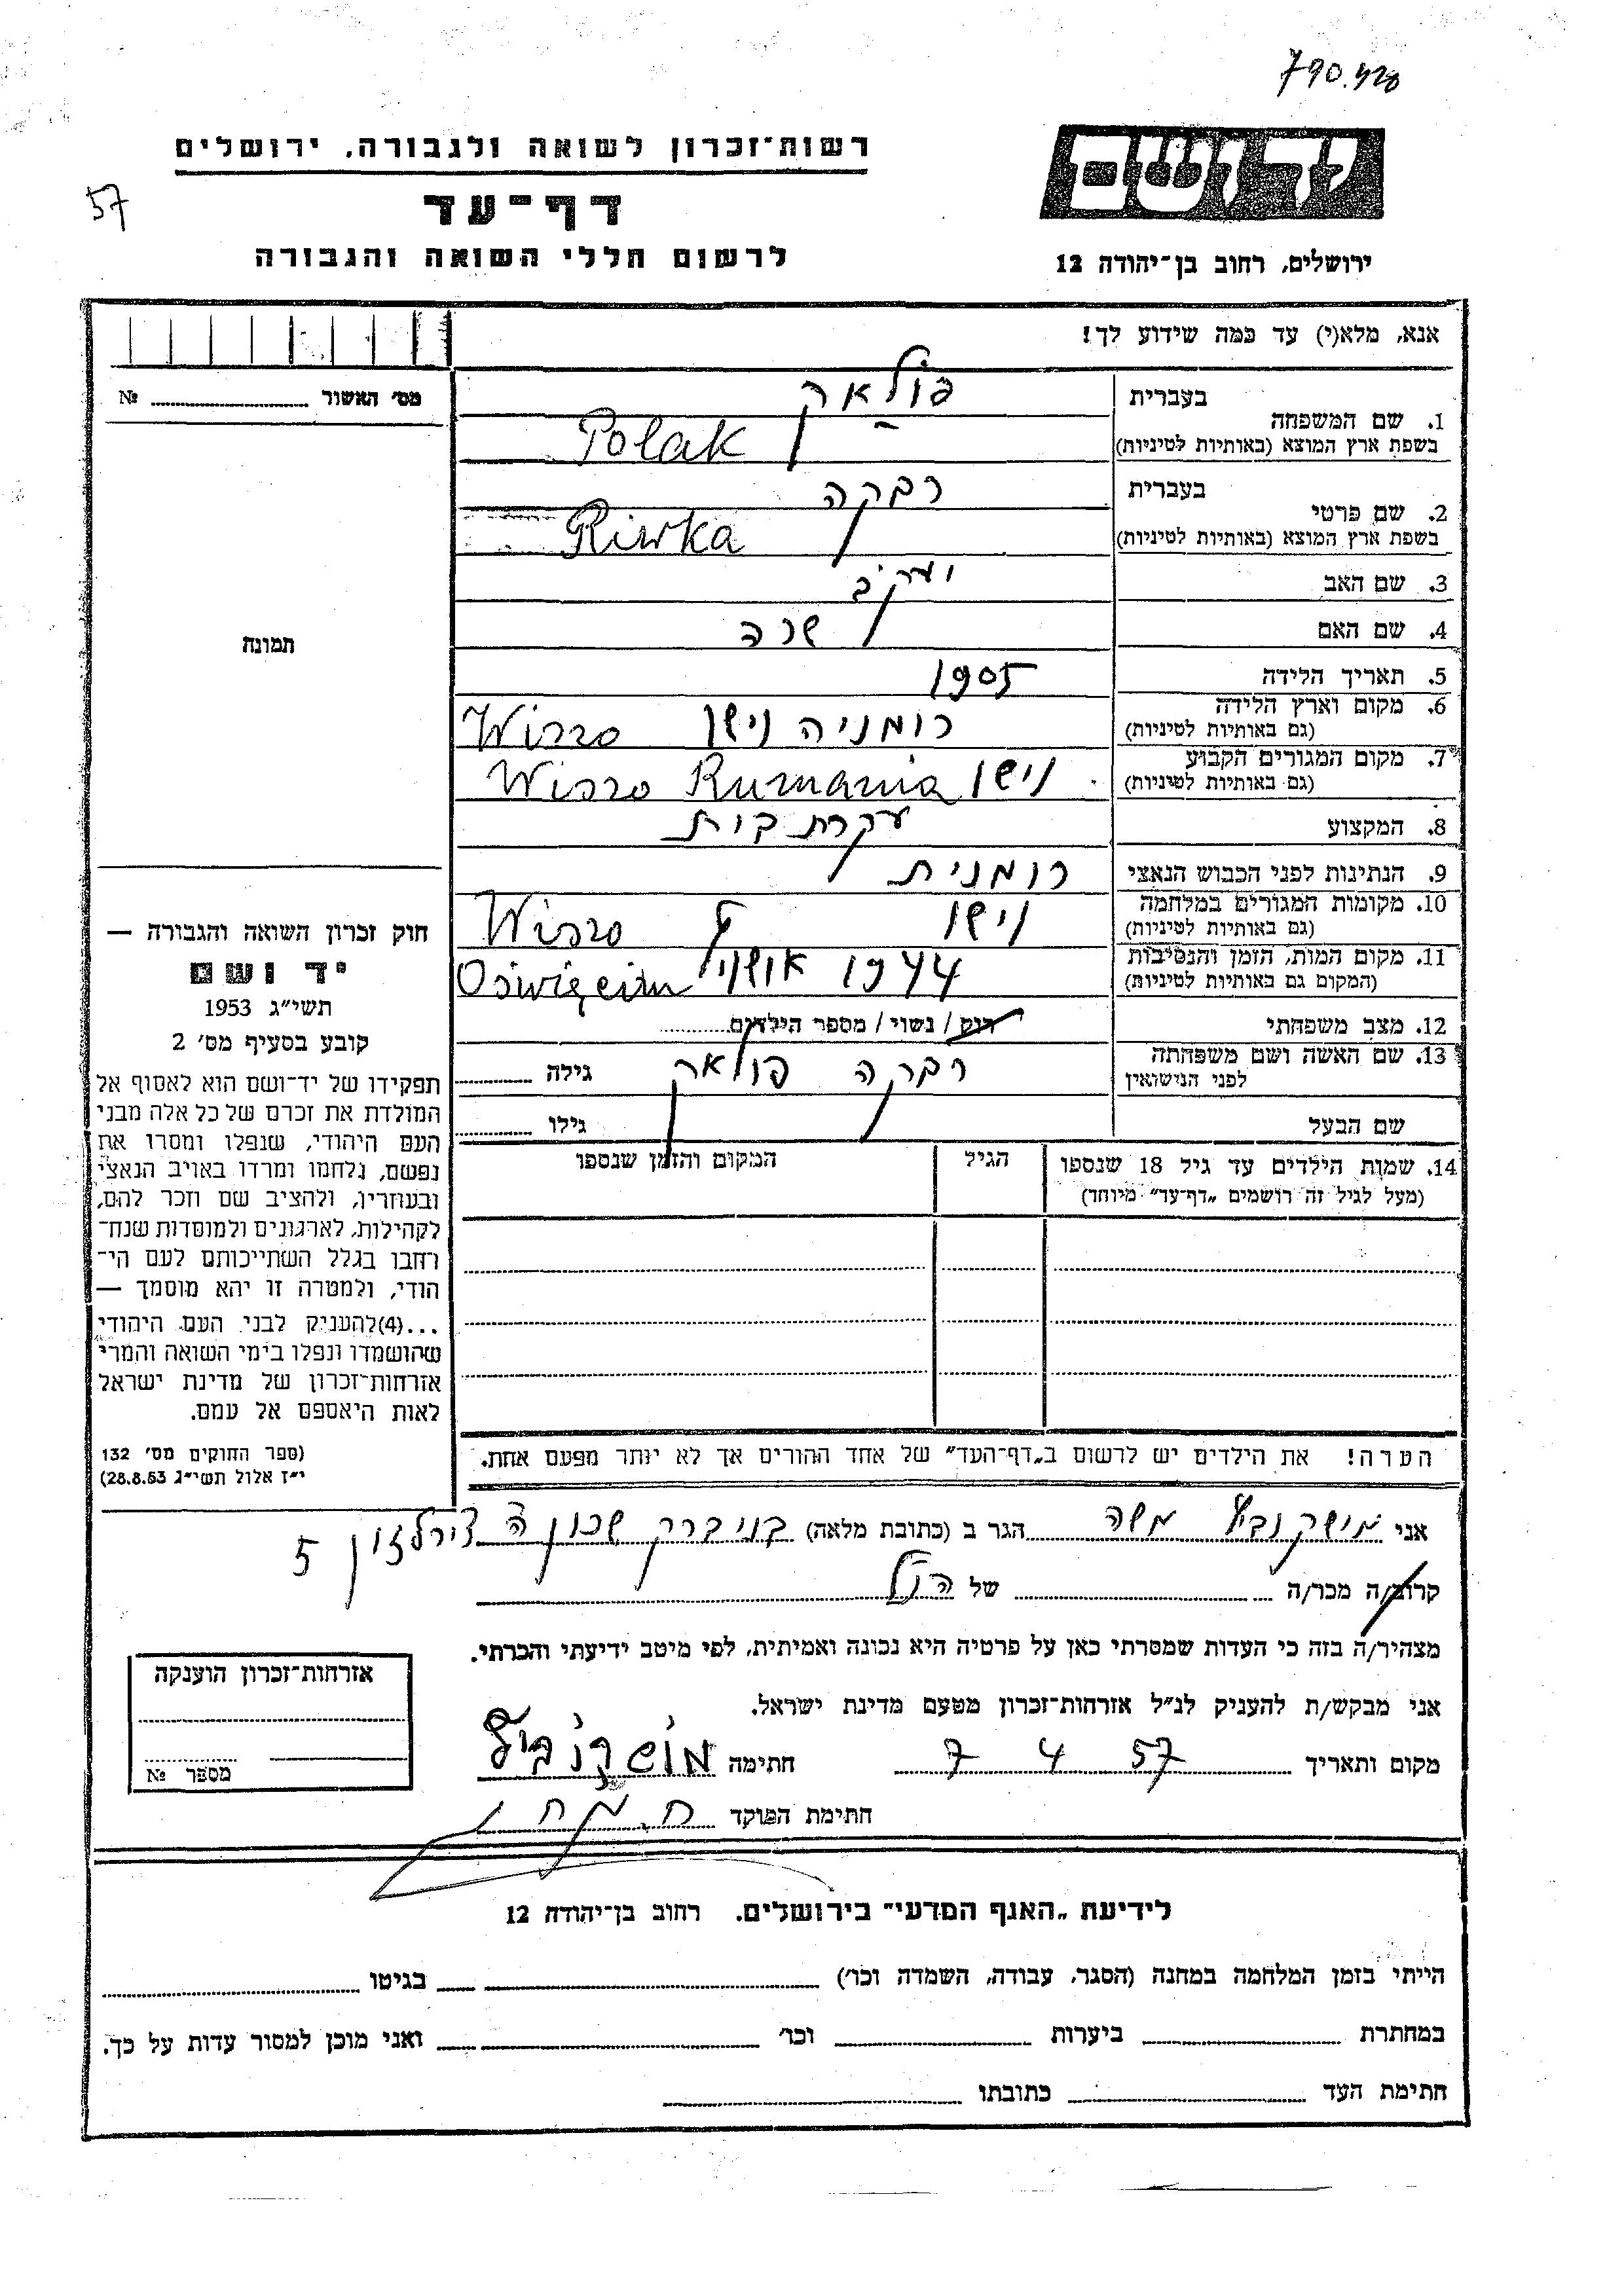 790.428
רשות־זכרון לשואה ולגבורה, ירושלים
57
דף־עד
לרשום חללי השואה והגבורה
ידושם
ירושלים, רחוב בן־יהודה 12
אנא, מלא(י) עד כמה שידוע לך!
מס׳ האשור № 
1. שם המשפחה
בעברית פולאק
בשפת ארץ המוצא (באותיות לטיניות) Polak
2. שם פרטי
בעברית רבקה
בשפת ארץ המוצא (באותיות לטיניות) Riwka
3. שם האב יעקב
4. שם האם שרה
5. תאריך הלידה 1905
6. מקום וארץ הלידה רומניה וישו Wisso
(גם באותיות לטיניות)
7. מקום המגורים הקבוע וישו Wisso Rumania
(גם באותיות לטיניות)
8. המקצוע עקרת בית
9. הנתינות לפני הכבוש הנאצי רומנית
10. מקומות המגורים במלחמה וישו Wisso
(גם באותיות לטיניות)
11. מקום המות, הזמן והנסיבות 1944 Oświęcim
(המקום גם באותיות לטיניות)
12. מצב משפחתי רוק / נשוי / מספר הילדים
13. שם האשה ושם משפחתה רבקה פולאק גילה
לפני הנישואין
שם הבעל גילו
14. שמות הילדים עד גיל 18 שנספו הגיל המקום והזמן שנספו
(מעל לגיל זה רושמים „דף־עד" מיוחד)
הערה! את הילדים יש לרשום ב„דף־העד" של אחד ההורים אך לא יותר מפעם אחת.
תמונה
חוק זכרון השואה והגבורה —
יד ושם
תשי״ג 1953
קובע בסעיף מס׳ 2
תפקידו של יד־ושם הוא לאסוף אל
המולדת את זכרם של כל אלה מבני
העם היהודי, שנפלו ומסרו את
נפשם, נלחמו ומרדו באויב הנאצי
ובעוזריו, ולהציב שם וזכר להם,
לקהילות, לארגונים ולמוסדות שנח־
רחבו בגלל השתייכותם לעם הי־
הודי, ולמטרה זו יהא מוסמך —
...(4) להעניק לבני העם היהודי
שהושמדו ונפלו בימי השואה והמרי
אזרחות־זכרון של מדינת ישראל
לאות היאספם אל עמם.
(ספר החוקים מס׳ 132
י״ז אלול תשי״ג 28.8.53)
אני משה הגר ב (כתובת מלאה) בני ברק שכון ה 5
קרוב/ה מכר/ה של הנ״ל
מצהיר/ה בזה כי העדות שמסרתי כאן על פרטיה היא נכונה ואמיתית, לפי מיטב ידיעתי והכרתי.
אני מבקש/ת להעניק לנ״ל אזרחות־זכרון מטעם מדינת ישראל.
מקום ותאריך 57 4 7 חתימה
חתימת הפוקד
אזרחות־זכרון הוענקה
מספר №
לידיעת „האגף המדעי" בירושלים. רחוב בן־יהודה 12
הייתי בזמן המלחמה במחנה (הסגר, עבודה, השמדה וכו׳) בגיטו
במחתרת ביערות וכו׳ ואני מוכן למסור עדות על כך.
חתימת העד כתובתו